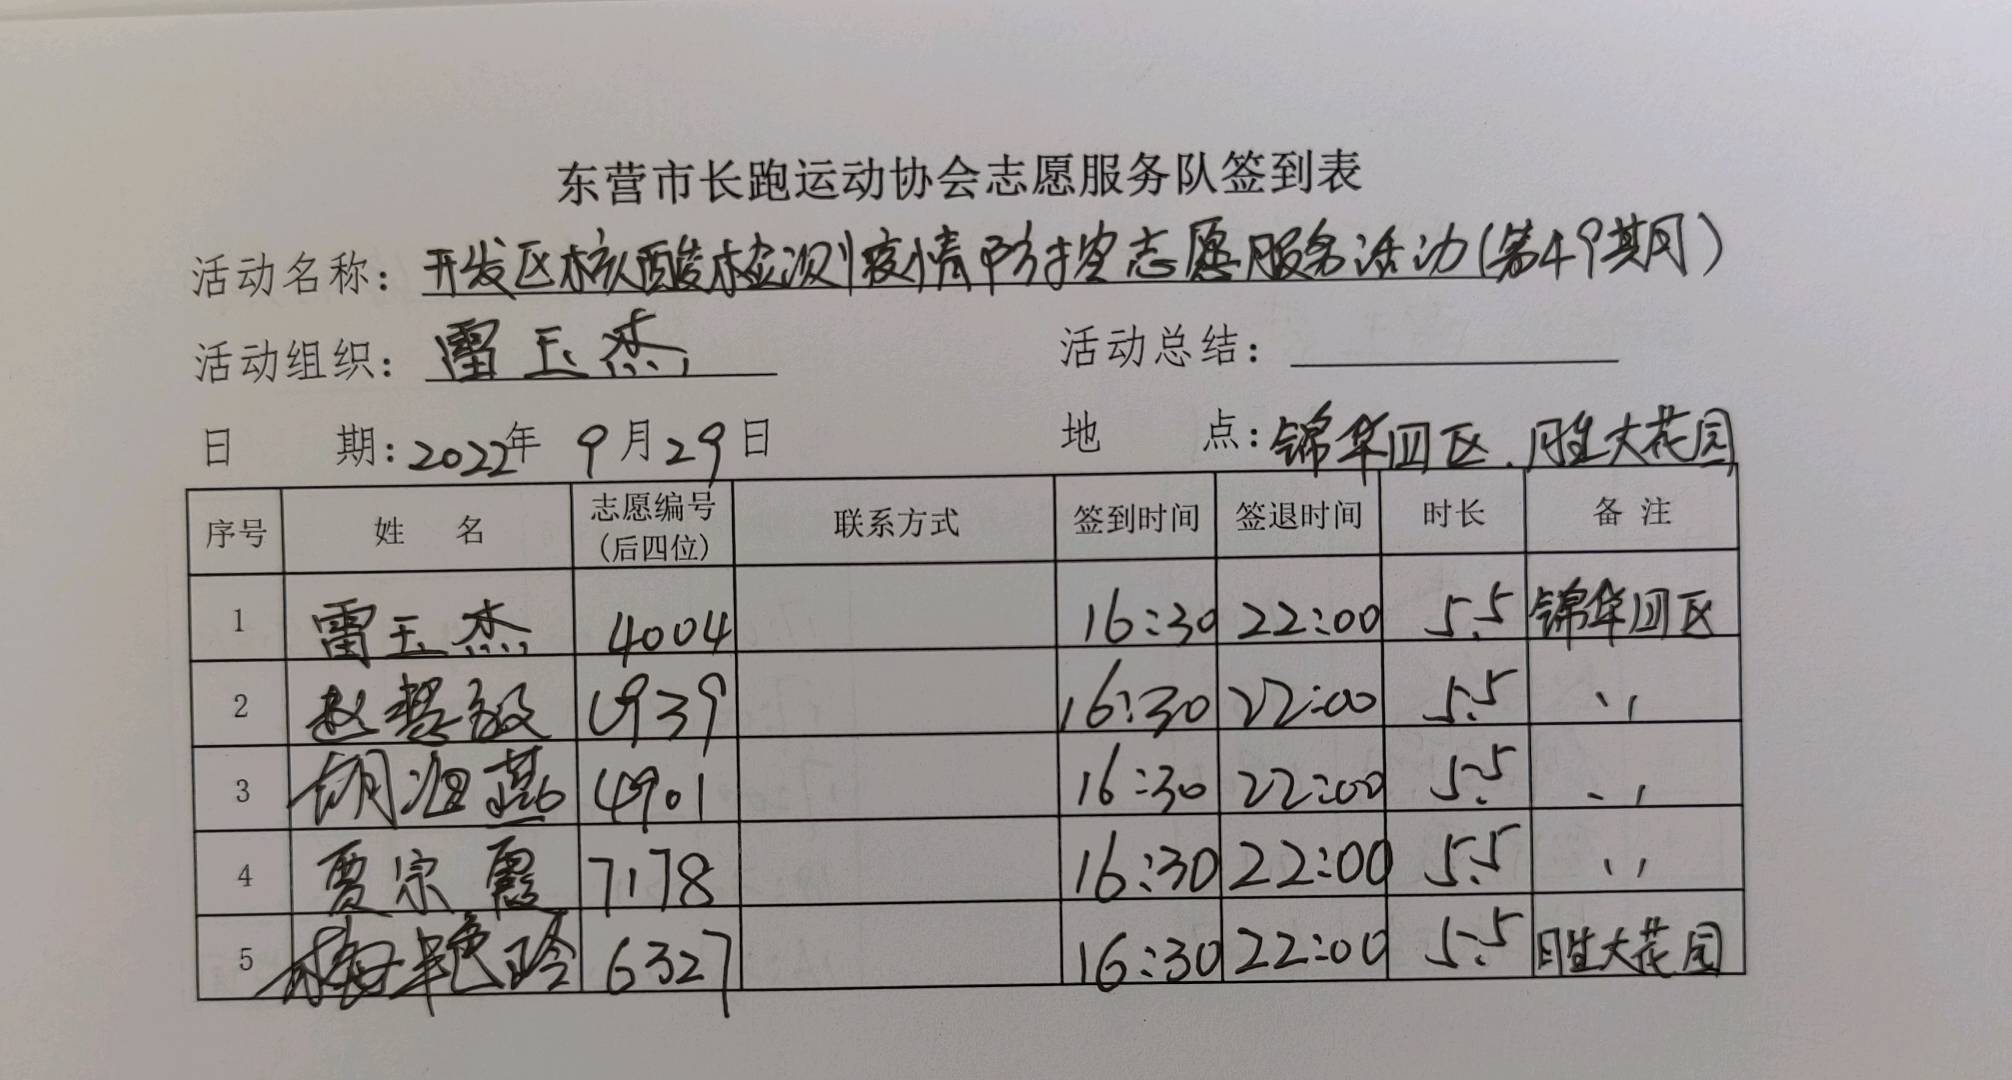 东营市长跑运动协会志愿服务队签到表
活动名称：开发区核酸检测疫情防控志愿服务活动（第49期）
活动组织：雷玉杰 活动总结：
日 期：2022年 9月29日 地 点：锦华四区．胜大花园
序号 姓 名 志愿编号（后四位） 联系方式 签到时间 签退时间 时长 备 注
1 雷玉杰 4004 16:30 22:00 5.5 锦华四区
2 赵慧敏 6939 16:30 22:00 5.5 〃
3 胡 燕 4901 16:30 22:00 5.5 〃
4 贾宗霞 7178 16:30 22:00 5.5 〃
5 梅艳玲 6327 16:30 22:00 5.5 胜大花园